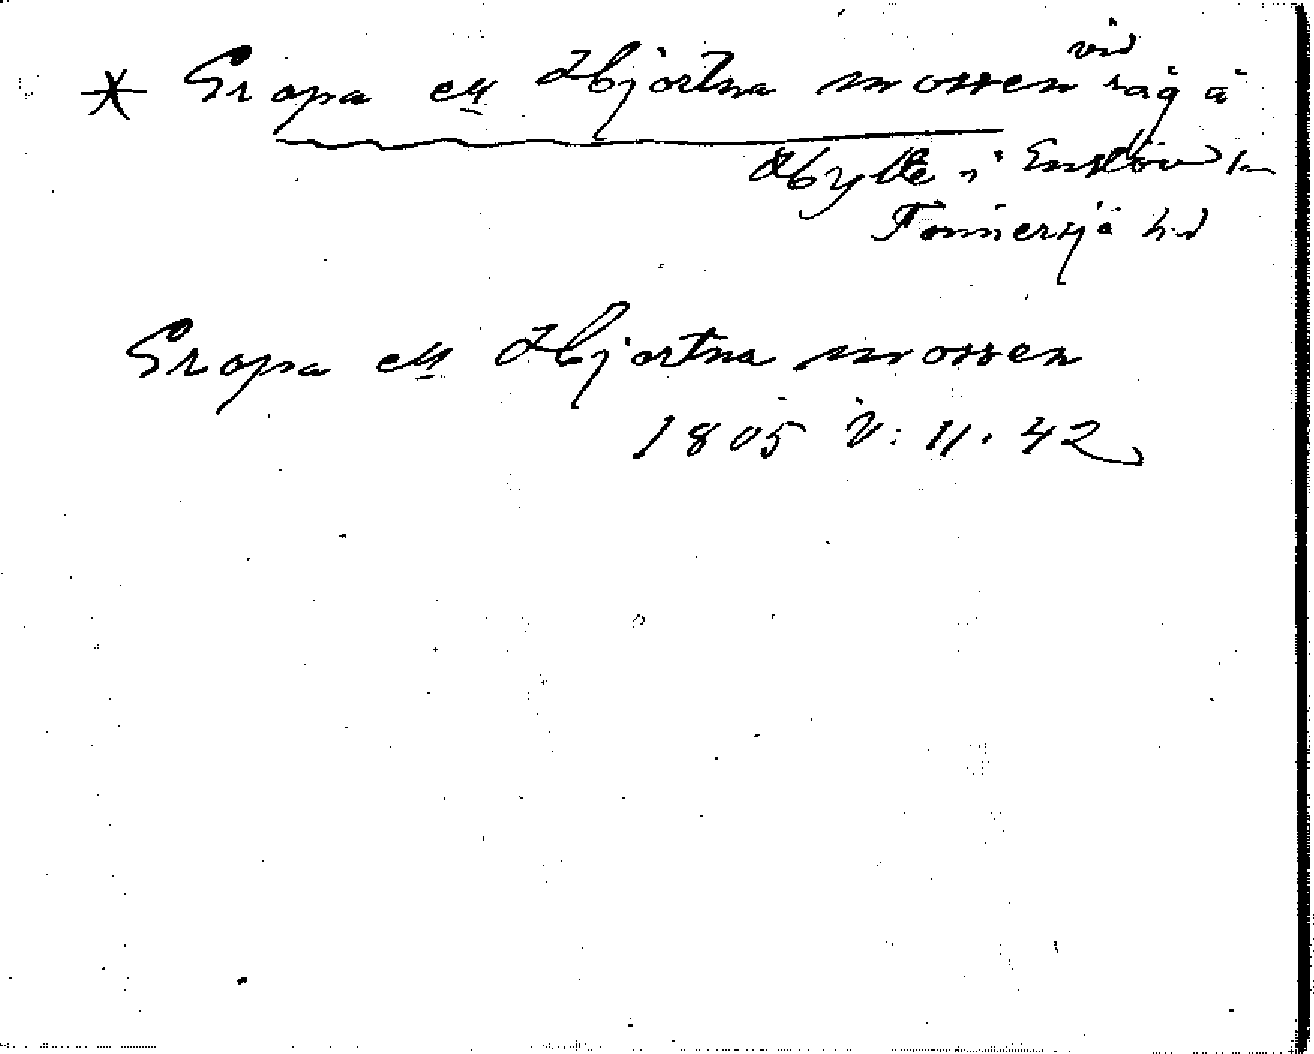 * Gropa ell Hjortna mossen vid råg å
Hylte i Enslöv sn
Tönnersjö hd
Gropa ell Hjortna mossen
1805 V: 11. 42